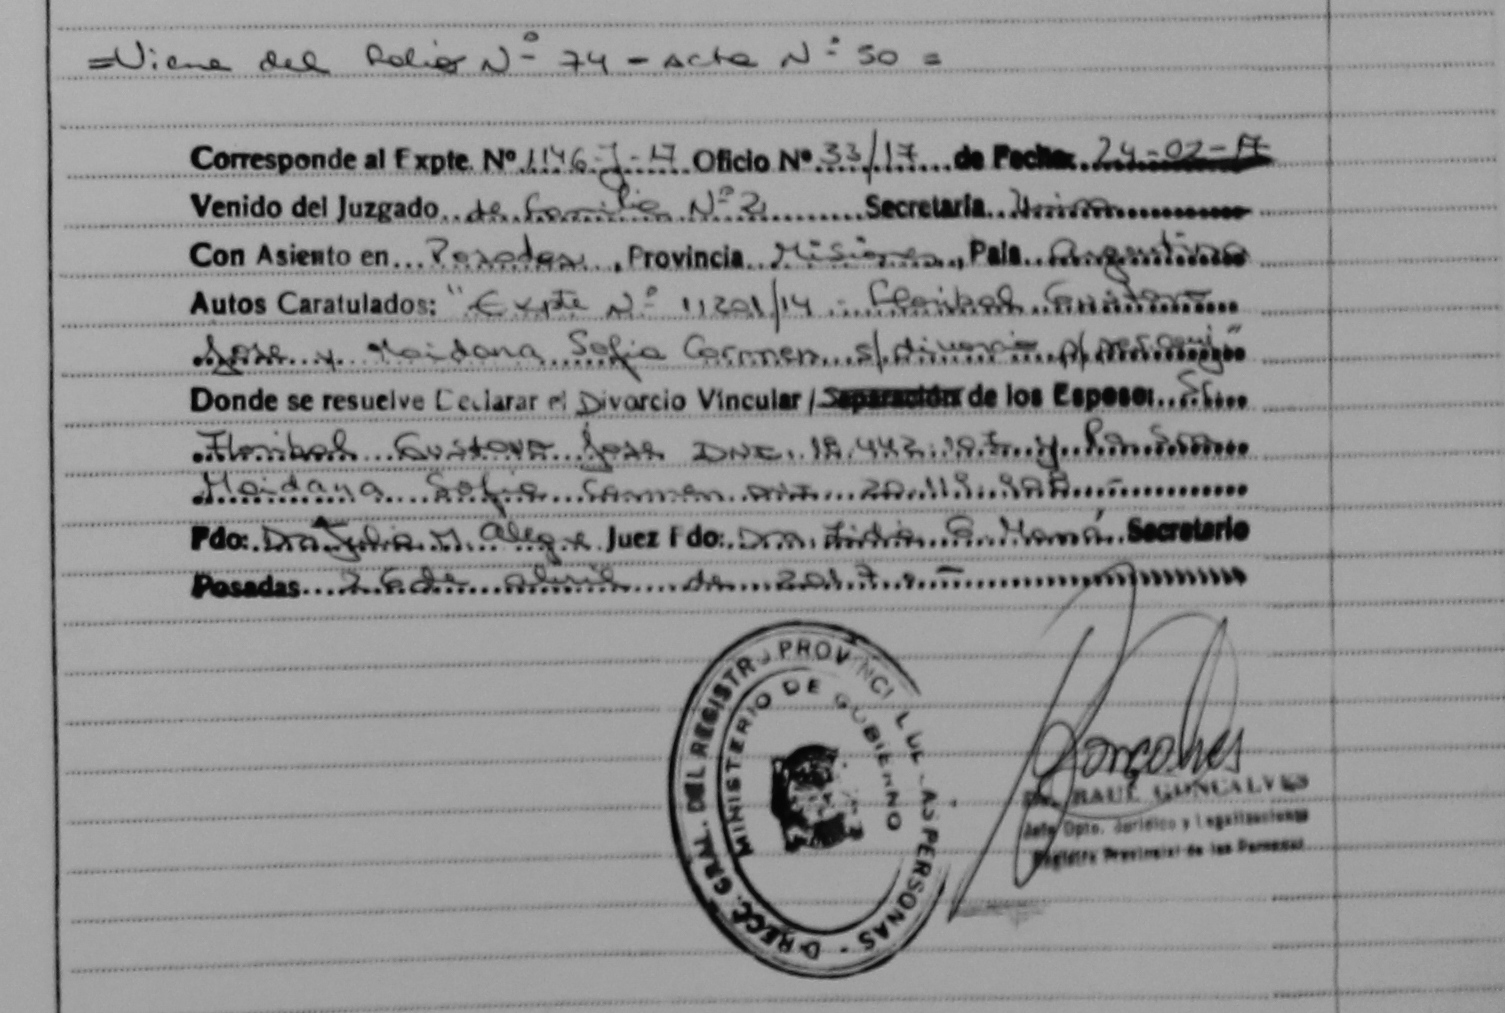 =Viene del Folio Nº 74 - Acta Nº 50 =
Corresponde al Expte. Nº 1146-J-17 Oficio Nº 33/17 de Fecha: 24-02-17
Venido del Juzgado de Familia Nº 2 Secretaria Unica
Con Asiento en Posadas, Provincia Misiones, Pais Argentina
Autos Caratulados: "Expte Nº 11201/14 - Floribal Gustavo
Jose y Maidana Sofia Carmen s/divorcio p/
Donde se resuelve Declarar el Divorcio Vincular / Separación de los Esposo:
Floribal Gustavo Jose DNI. 18.442. y la Sra
Maidana Sofia Carmen DNI 20.119.
Fdo: Dra Julia M. Alegre Juez Fdo: Dra. Secretario
Posadas 26 de abril de 2017.-
DIRECC. GRAL. DEL REGISTRO PROVINCIAL DE LAS PERSONAS -
MINISTERIO DE GOBIERNO
Goncalves
Dr. RAUL GONCALVES
Jefe Dpto. Jurídico y Legalizaciones
Registro Provincial de las Personas